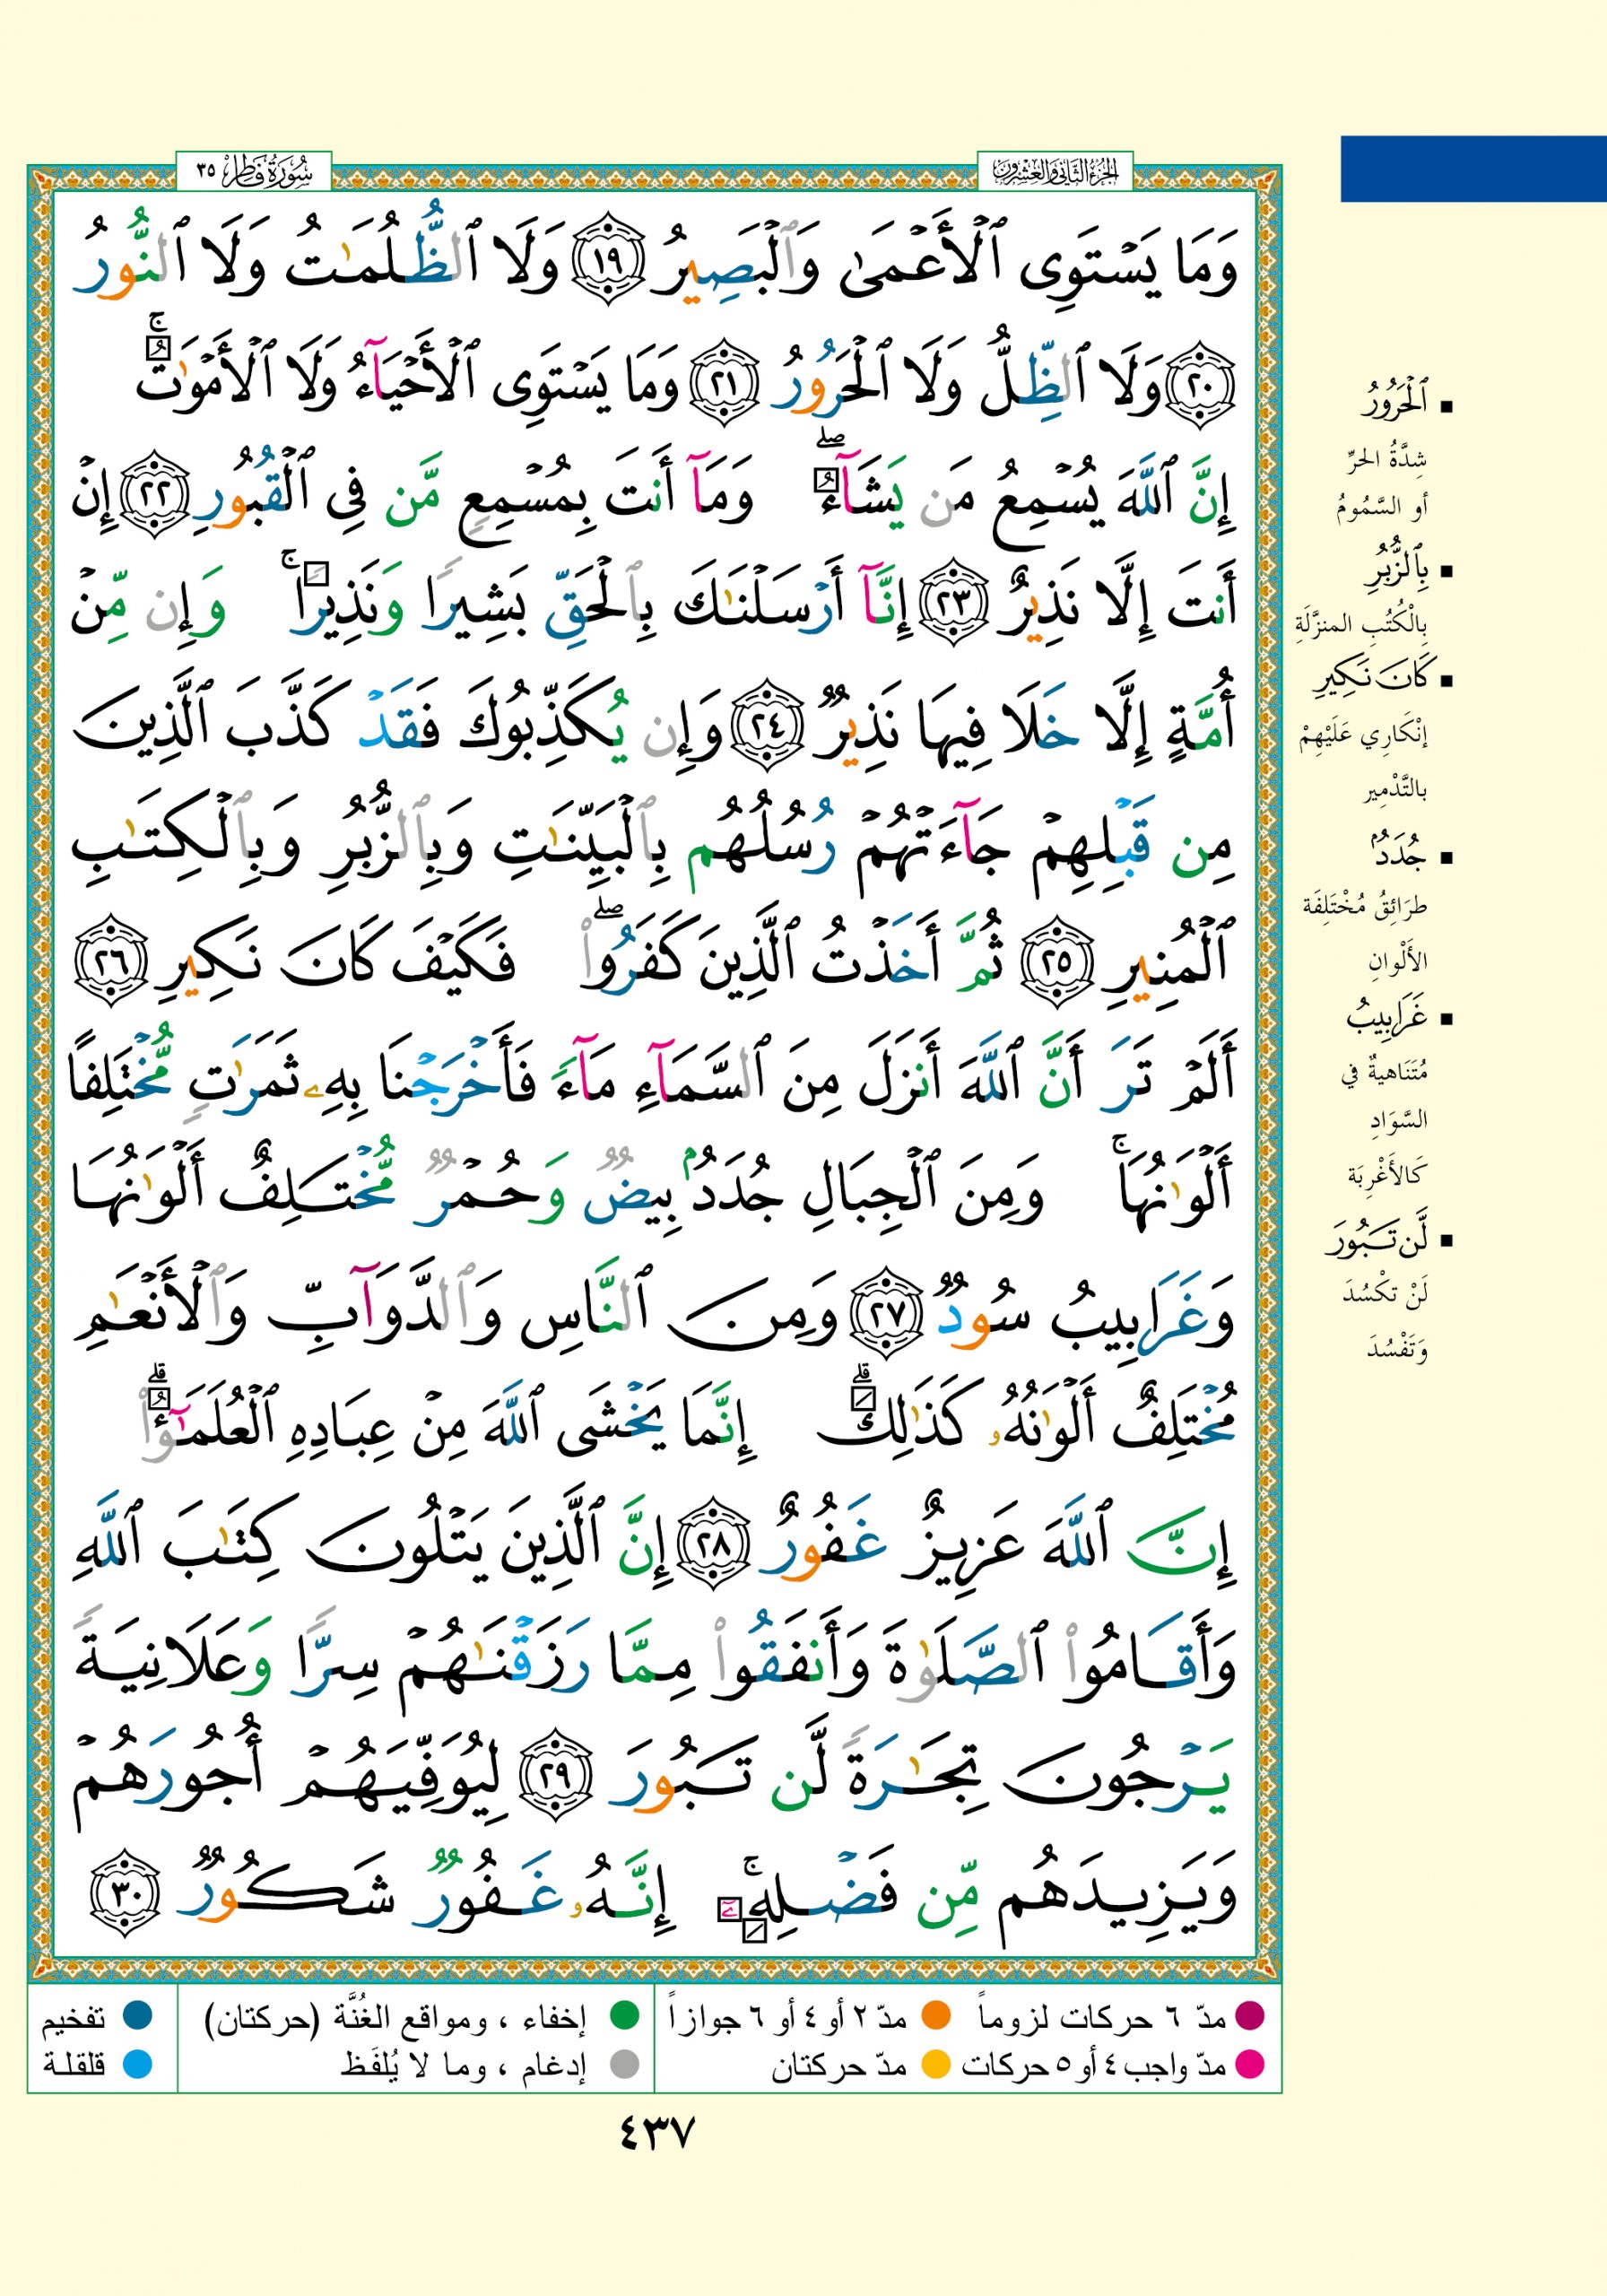 الجزء الثاني والعشرون
سورة فاطر ٣٥
وَمَا يَسْتَوِى ٱلْأَعْمَىٰ وَٱلْبَصِيرُ ١٩ وَلَا ٱلظُّلُمَٰتُ وَلَا ٱلنُّورُ
٢٠ وَلَا ٱلظِّلُّ وَلَا ٱلْحَرُورُ ٢١ وَمَا يَسْتَوِى ٱلْأَحْيَآءُ وَلَا ٱلْأَمْوَٰتُ ۚ
إِنَّ ٱللَّهَ يُسْمِعُ مَن يَشَآءُ ۖ وَمَآ أَنتَ بِمُسْمِعٍ مَّن فِى ٱلْقُبُورِ ٢٢ إِنْ
أَنتَ إِلَّا نَذِيرٌ ٢٣ إِنَّآ أَرْسَلْنَٰكَ بِٱلْحَقِّ بَشِيرًا وَنَذِيرًا ۚ وَإِن مِّنْ
أُمَّةٍ إِلَّا خَلَا فِيهَا نَذِيرٌ ٢٤ وَإِن يُكَذِّبُوكَ فَقَدْ كَذَّبَ ٱلَّذِينَ
مِن قَبْلِهِمْ جَآءَتْهُمْ رُسُلُهُم بِٱلْبَيِّنَٰتِ وَبِٱلزُّبُرِ وَبِٱلْكِتَٰبِ
ٱلْمُنِيرِ ٢٥ ثُمَّ أَخَذْتُ ٱلَّذِينَ كَفَرُوا۟ ۖ فَكَيْفَ كَانَ نَكِيرِ ٢٦
أَلَمْ تَرَ أَنَّ ٱللَّهَ أَنزَلَ مِنَ ٱلسَّمَآءِ مَآءً فَأَخْرَجْنَا بِهِۦ ثَمَرَٰتٍ مُّخْتَلِفًا
أَلْوَٰنُهَا ۚ وَمِنَ ٱلْجِبَالِ جُدَدٌۢ بِيضٌ وَحُمْرٌ مُّخْتَلِفٌ أَلْوَٰنُهَا
وَغَرَابِيبُ سُودٌ ٢٧ وَمِنَ ٱلنَّاسِ وَٱلدَّوَآبِّ وَٱلْأَنْعَٰمِ
مُخْتَلِفٌ أَلْوَٰنُهُۥ كَذَٰلِكَ ۗ إِنَّمَا يَخْشَى ٱللَّهَ مِنْ عِبَادِهِ ٱلْعُلَمَٰٓؤُا۟ ۗ
إِنَّ ٱللَّهَ عَزِيزٌ غَفُورٌ ٢٨ إِنَّ ٱلَّذِينَ يَتْلُونَ كِتَٰبَ ٱللَّهِ
وَأَقَامُوا۟ ٱلصَّلَوٰةَ وَأَنفَقُوا۟ مِمَّا رَزَقْنَٰهُمْ سِرًّا وَعَلَانِيَةً
يَرْجُونَ تِجَٰرَةً لَّن تَبُورَ ٢٩ لِيُوَفِّيَهُمْ أُجُورَهُمْ
وَيَزِيدَهُم مِّن فَضْلِهِۦٓ ۚ إِنَّهُۥ غَفُورٌ شَكُورٌ ٣٠
▪ ٱلْحَرُورُ
شِدَّةُ الحرِّ
أو السَّمُومُ
▪ بِٱلزُّبُرِ
بِالْكُتُبِ المنزَّلَةِ
▪ كَانَ نَكِيرِ
إنْكَارِي عَلَيْهِمْ
بالتَّدْمِير
▪ جُدَدٌۢ
طرَائِقُ مُخْتَلِفَة
الأَلْوانِ
▪ غَرَابِيبُ
مُتَنَاهيةٌ في
السَّوَادِ
كَالأَغْرِبَة
▪ لَّن تَبُورَ
لَنْ تكْسُدَ
وَتَفْسُدَ
مدّ ٦ حركات لزوماً
مدّ ٢ أو ٤ أو ٦ جوازاً
إخفاء ، ومواقع الغُنَّة (حركتان)
تفخيم
مدّ واجب ٤ أو ٥ حركات
مدّ حركتان
إدغام ، وما لا يُلفَظ
قلقلة
٤٣٧